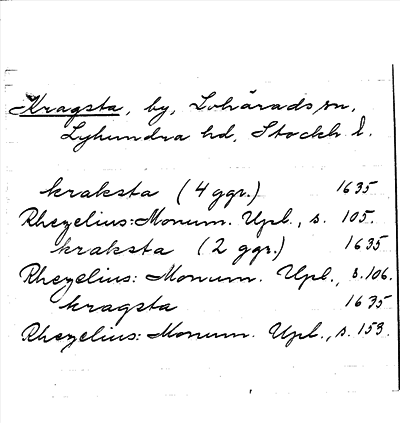 Kragsta, by, Lohärads sn,
Lyhundra hd, Stockh. l.
kraksta (4 ggr.) 1635
Rhezelius: Monum. Upl., s. 105.
kraksta (2 ggr.) 1635
Rhezelius: Monum. Upl., s. 106.
kragsta 1635
Rhezelius: Monum. Upl., s. 153.